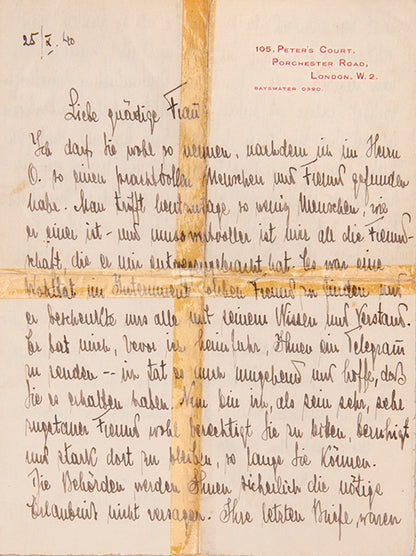 25/X. 40
105, PETER'S COURT,
PORCHESTER ROAD,
LONDON, W. 2.
BAYSWATER 0390.
Liebe gnädige Frau
Ich darf Sie wohl so nennen, nachdem ich im Herrn
O. so einen prachtvollen Menschen und Freund gefunden
habe. Man trifft heutzutage so wenig Menschen, wie
er einer ist - und umso wertvoller ist mir all die Freund-
schaft, die er mir entgegengebracht hat. Es war eine
Wohltat im Internment solchen Freund zu finden und
er beschenkte uns alle mit seinem Wissen und Verstand.
Er bat mich, bevor ich heimfuhr, Ihnen ein Telegram
zu senden -- ich tat es auch umgehend und hoffe, daß
Sie es erhalten haben. Nun bin ich, als sein sehr, sehr
zugetaner Freund wohl berechtigt Sie zu bitten, beruhigt
und stark dort zu bleiben, so lange Sie können.
Die Behörden werden Ihnen sicherlich die nötige
Erlaubnis nicht versagen. Ihre letzten Briefe waren